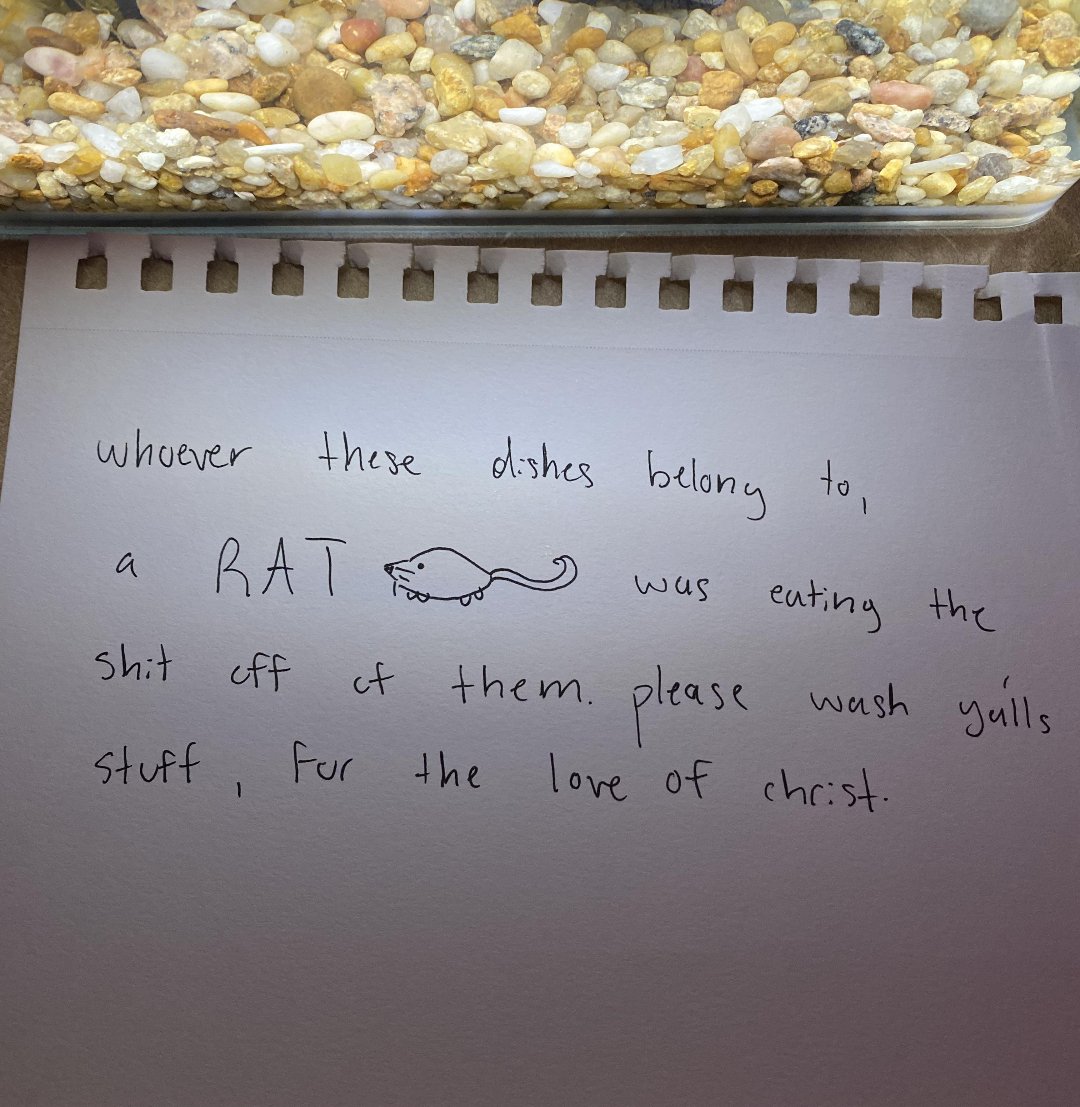 whoever these dishes belong to,
a RAT was eating the
shit off of them. please wash ya'lls
stuff, for the love of christ.